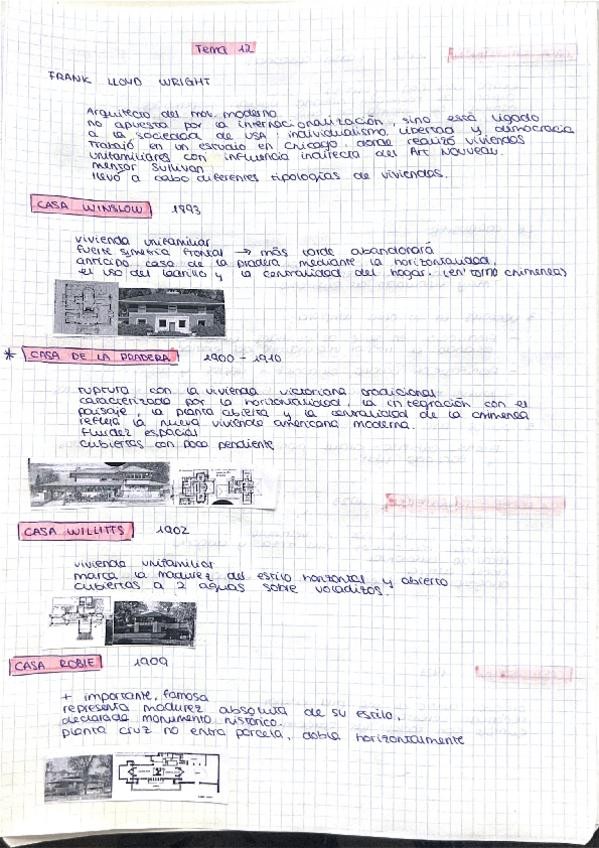 Tema 12
FRANK LLOYD WRIGHT
Arquitecto del mov. moderno
no apuesta por la internacionalización, sino está ligado
a la sociedad de USA: individualismo, libertad y democracia
Trabajó en un estudio en Chicago, donde realizó viviendas
unifamiliares con influencia indirecta del Art Nouveau.
mentor Sullivan
llevó a cabo diferentes tipologías de viviendas.
CASA WINSLOW 1893
vivienda unifamiliar
fuerte simetría frontal → más tarde abandonará
anticipo casa de la pradera mediante la horizontalidad,
el uso del ladrillo y la centralidad del hogar. (en torno chimenea)
* CASA DE LA PRADERA 1900 - 1910
ruptura con la vivienda victoriana tradicional
caracterizada por la horizontalidad, la integración con el
paisaje, la planta abierta y la centralidad de la chimenea
refleja la nueva vivienda americana moderna.
fluidez espacial
cubiertas con poca pendiente
CASA WILLITTS 1902
vivienda unifamiliar
marca la madurez del estilo horizontal y abierto
cubiertas a 2 aguas sobre voladizos.
CASA ROBIE 1909
+ importante, famosa
representa madurez absoluta de su estilo.
declarada monumento histórico.
planta cruz no entra parcela, dobla horizontalmente